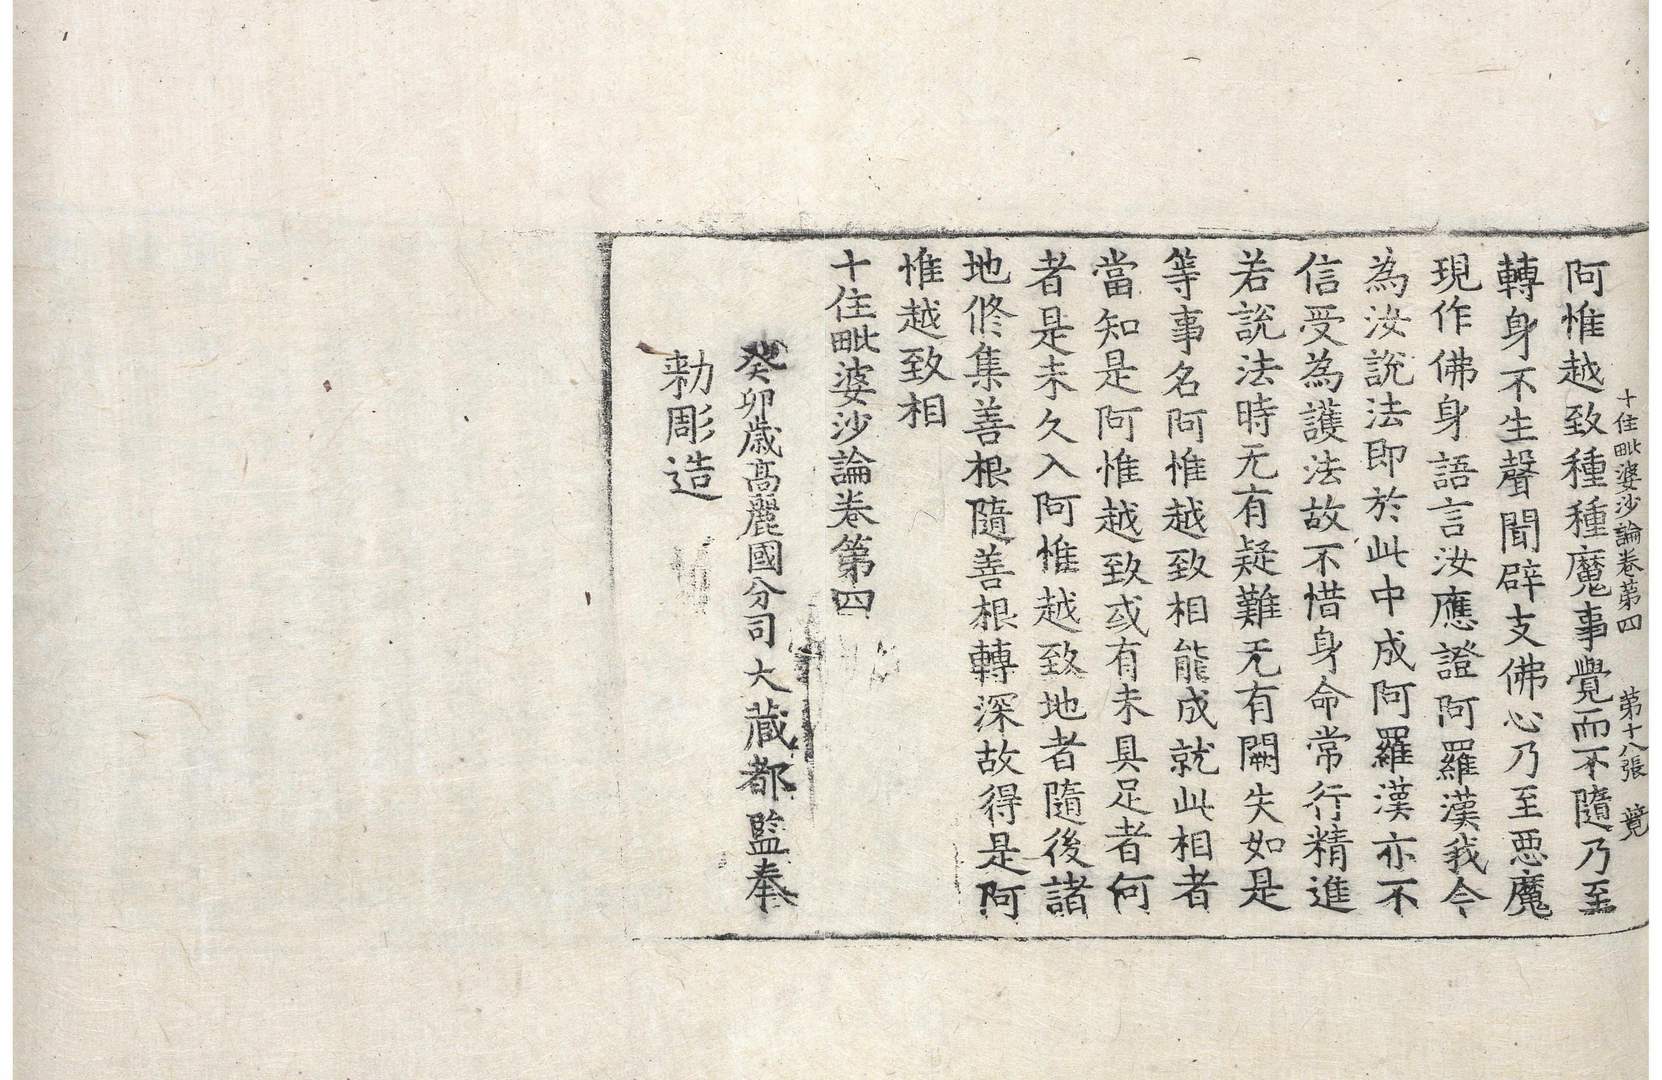 十住毗婆沙論卷第四　第十八張　覽
阿惟越致種種魔事覺而不隨乃至
轉身不生聲聞辟支佛心乃至惡魔
現作佛身語言汝應證阿羅漢我今
為汝說法即於此中成阿羅漢亦不
信受為護法故不惜身命常行精進
若說法時无有疑難无有闕失如是
等事名阿惟越致相能成就此相者
當知是阿惟越致或有未具足者何
者是未久入阿惟越致地者隨後諸
地修集善根隨善根轉深故得是阿
惟越致相
十住毗婆沙論卷第四
癸卯歲高麗國分司大藏都監奉
勑彫造